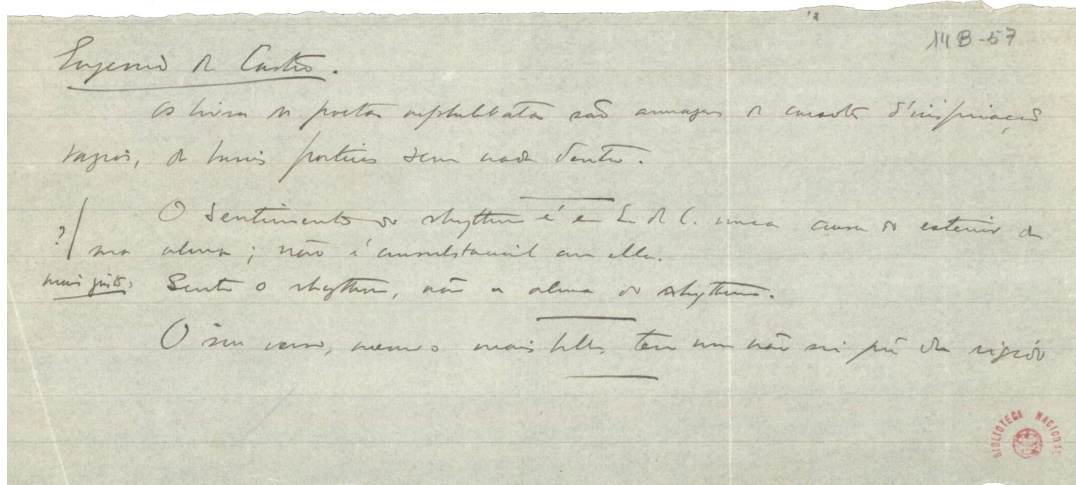 14 B - 57
Eugenio de Castro.
Os livros dos poetas são de d'inspiração
vagos, de sem nada dentro.
O sentimento do rhythmo é em E. de C. uma cousa do exterior da
?/ sua alma; não é consubstancial com ella.
mais justo: Sente o rhythmo, não a alma do rhythmo.
O seu verso, mesmo o mais bello, tem um não sei quê de rigido
BIBLIOTECA NACIONAL